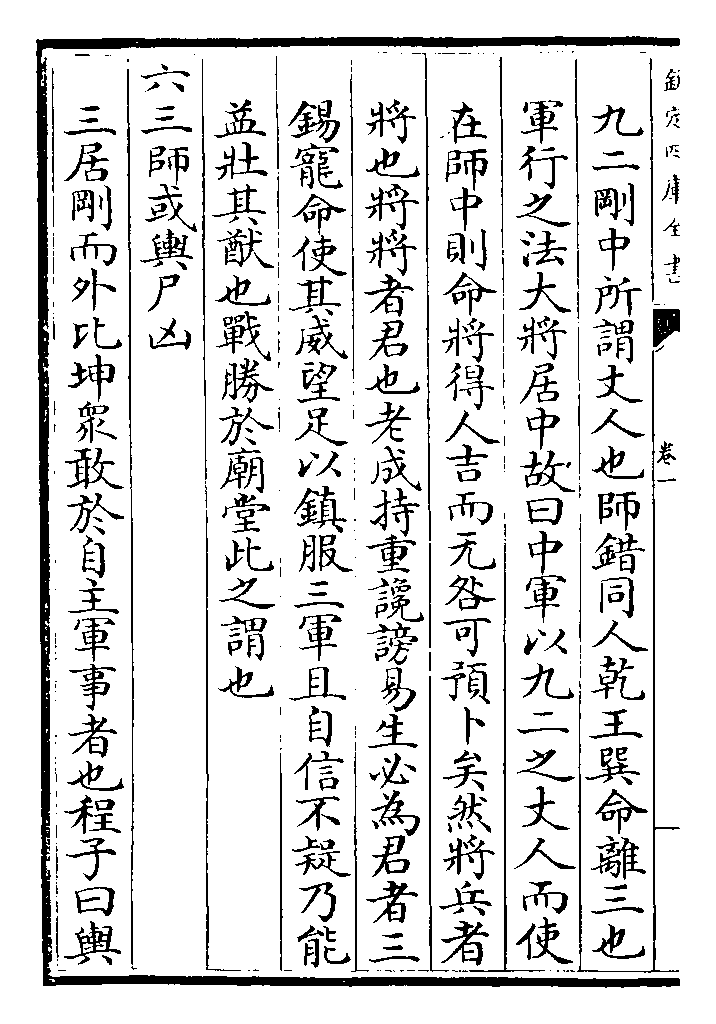 欽定四庫全書
卷一
九二剛中所謂丈人也師錯同人乾王巽命離三也
軍行之法大將居中故曰中軍以九二之丈人而使
在師中則命將得人吉而无咎可預卜矣然將兵者
將也將將者君也老成持重讒謗易生必為君者三
錫寵命使其威望足以鎮服三軍且自信不疑乃能
益壯其猷也戰勝於廟堂此之謂也
六三師或輿尸凶
三居剛而外比坤衆敢於自主軍事者也程子曰輿